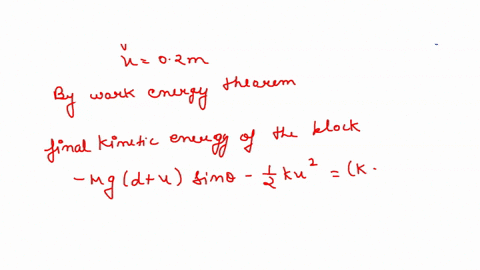 x = 0.2m
By work energy theorem
final kinetic energy of the block
-Mg(d+x) sinθ - 1/2 kx² = (K.